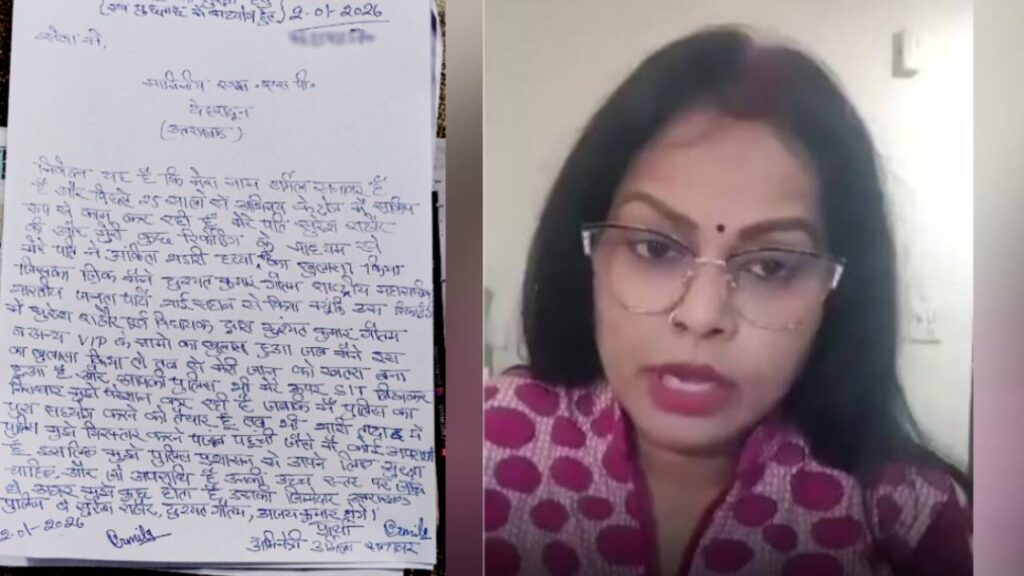 (हेतु) 2-01-2026
सेवा में,
माननीय एस. एस. पी.
देहरादून
(उत्तराखण्ड)
निवेदन यह है कि मेरा नाम उर्मिला सनावर है
मैं और पिछले 25 सालों से अभिनय के क्षेत्र में सक्रिय
रूप से काम कर रही हूँ मेरे पति सुरेश राठौर
की और मेरी कुछ रिकॉर्डिंग के माध्यम से
मेरे पति ने अंकिता भंडारी हत्या का खुलासा किया
जिसका जिक्र मैंने दुष्यंत कुमार गौतम राष्ट्रीय महासचिव
भारतीय जनता पार्टी से किया क्योंकि उस रिकॉर्डिंग
में सुरेश राठौर पूर्व विधायक द्वारा दुष्यंत कुमार गौतम
व अन्य VIP के नामों का खुलासा हुआ जब मैंने इस
का खुलासा किया तो तब से मेरी जान को खतरा बना
हुआ है और आपकी पुलिस भी मेरे ऊपर SIT बिठाकर
मुझे परेशान कर रही है जबकि मैं पुलिस का
पूरा सहयोग करने को तैयार हूँ तब भी
पुलिस मुझे गिरफ्तार करने पहुंची जैसे मैं कोई अपराधी
हूँ इसलिए मुझे पुलिस प्रशासन से अपने लिए सुरक्षा
चाहिए और जो अपराधी है उनकी उच्च स्तर पर जाँच
हो अगर मुझे कुछ होता है उसकी जिम्मेदार उत्तराखण्ड
पुलिस व सुरेश राठौर, दुष्यंत गौतम, अजय कुमार होंगे।
2-01-2026 Urmila प्रार्थी Urmila
अभिनेत्री उर्मिला सनावर